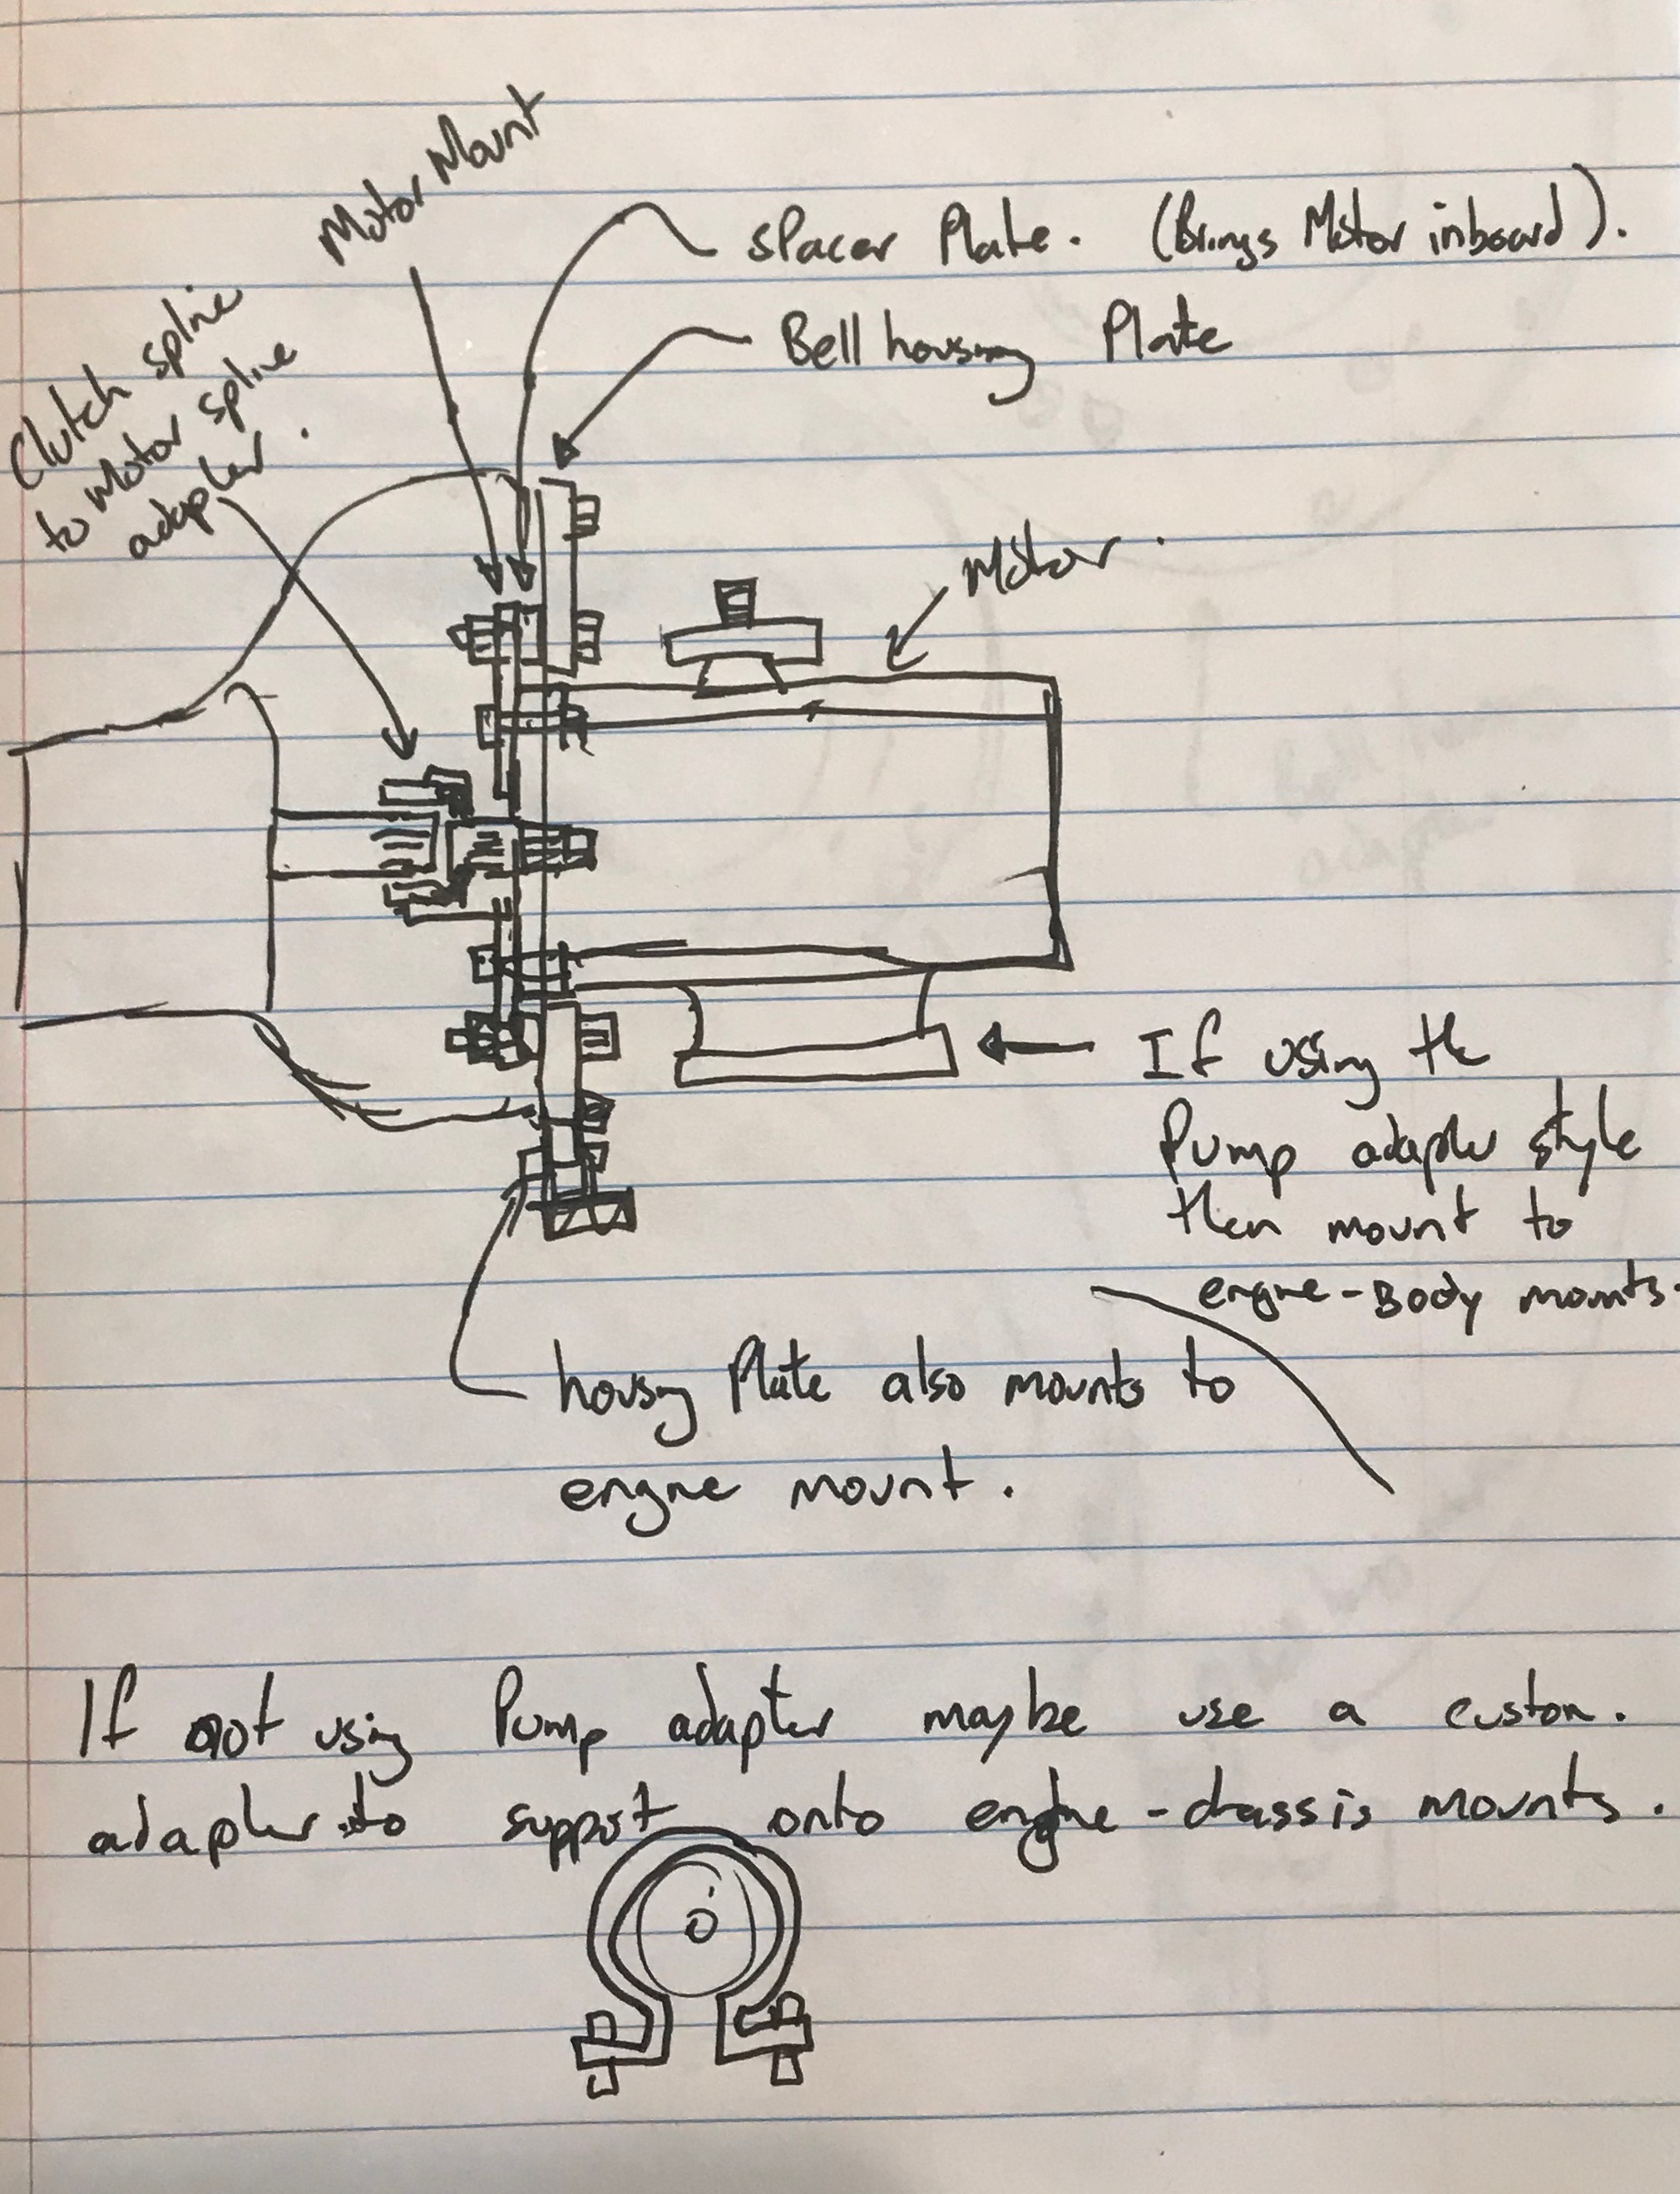 Motor Mount
sPacer Plate. (Brings Motor inboard).
Bell housing Plate
Clutch spline
to Motor spline
adapter.
Motor.
If using the
Pump adapter style
then mount to
engine-Body mounts.
housing Plate also mounts to
engine mount.
If not using Pump adapter maybe use a custom.
adapter to support onto engine-chassis mounts.